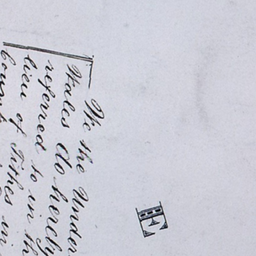 We the Under
Wales do hereby
referred to in th
lieu of Tithes in
bound
E